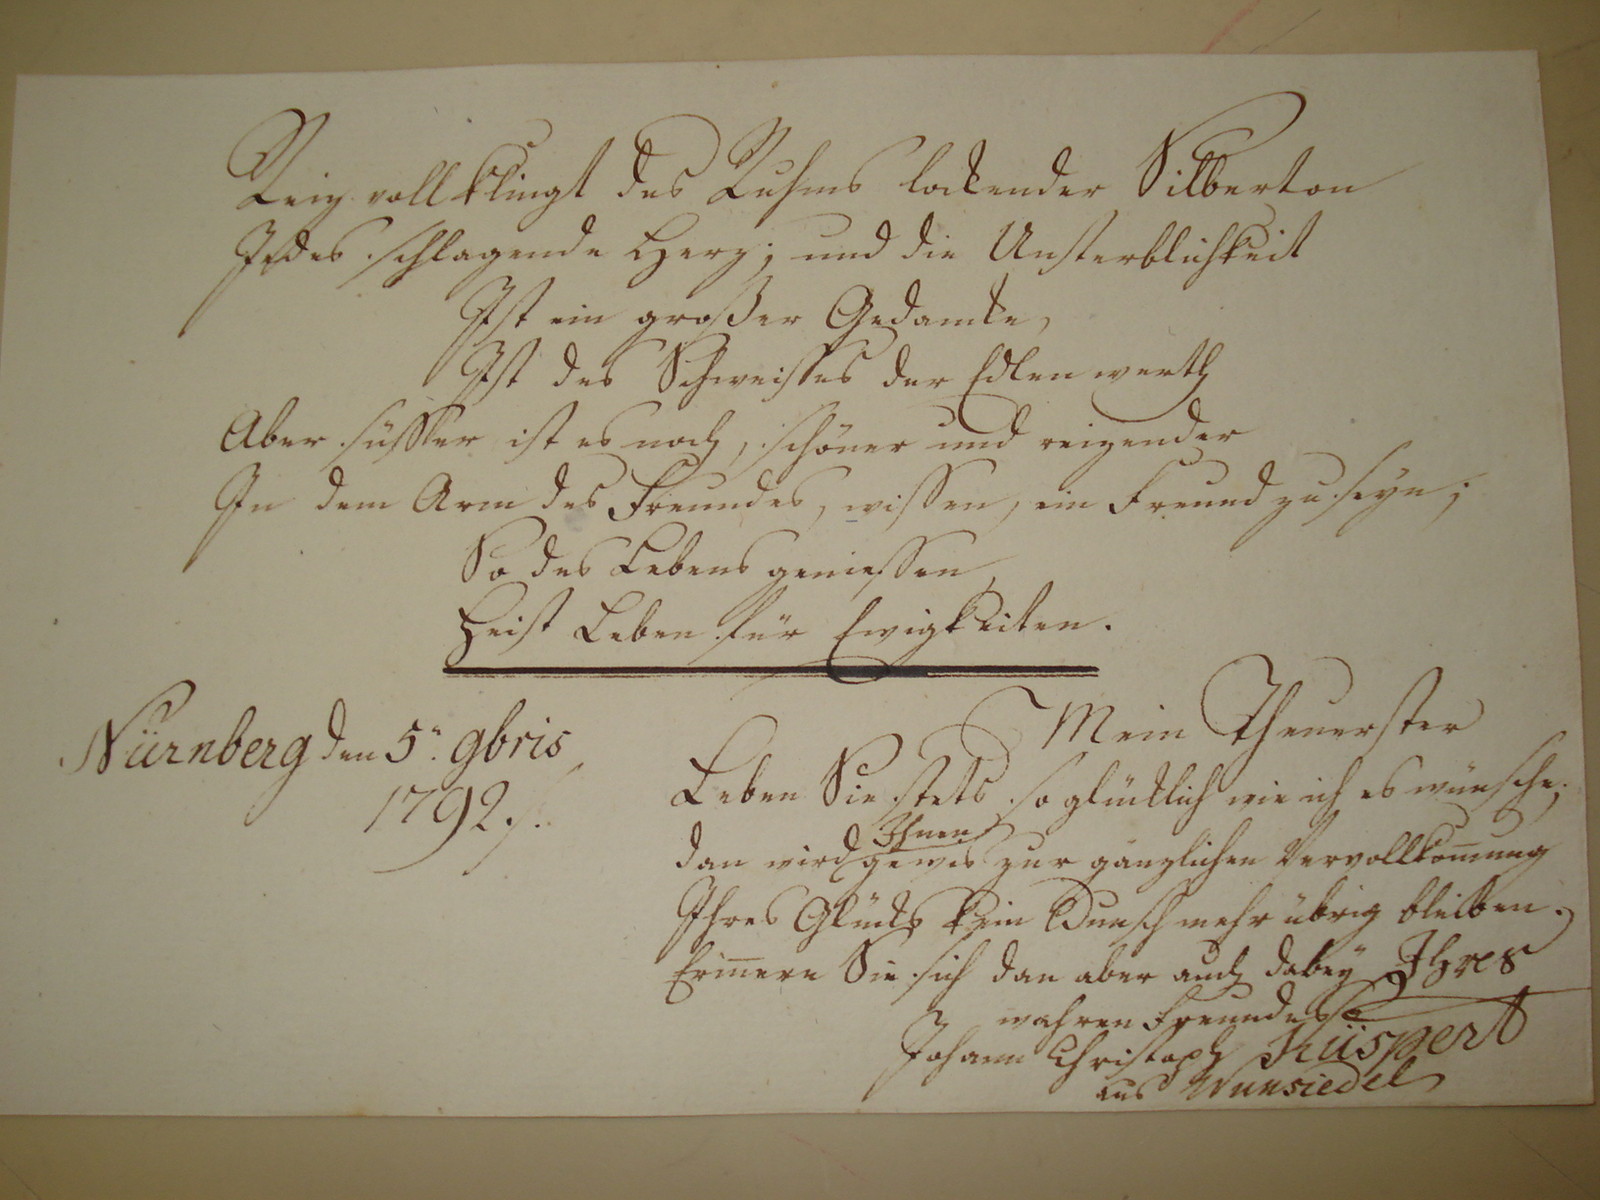 Reiz voll klingt des Ruhms lockender Silberton
Jedes schlagende Herz; und die Unsterblichkeit
Ist ein großer Gedanke,
Ist des Schweisses der Edlen werth
Aber süsser ist es noch, schöner und reizender
In dem Arm des Freundes, wissen, ein Freund zu seyn;
So des Lebens geniessen,
Heist Leben für Ewigkeiten.
Nürnberg den 5. 9bris
1792.
Mein Theuerster
Leben Sie stets so glücklich wie ich es wünsche;
dan wird Ihnen gewis zur gänzlichen Vervollkom̅ung
Ihres Glücks kein Wunsch mehr übrig bleiben.
Erin̅ere Sie sich dan aber auch dabey Ihres
wahren Freundes
Johann Christoph Küspert
aus Wunsiedel